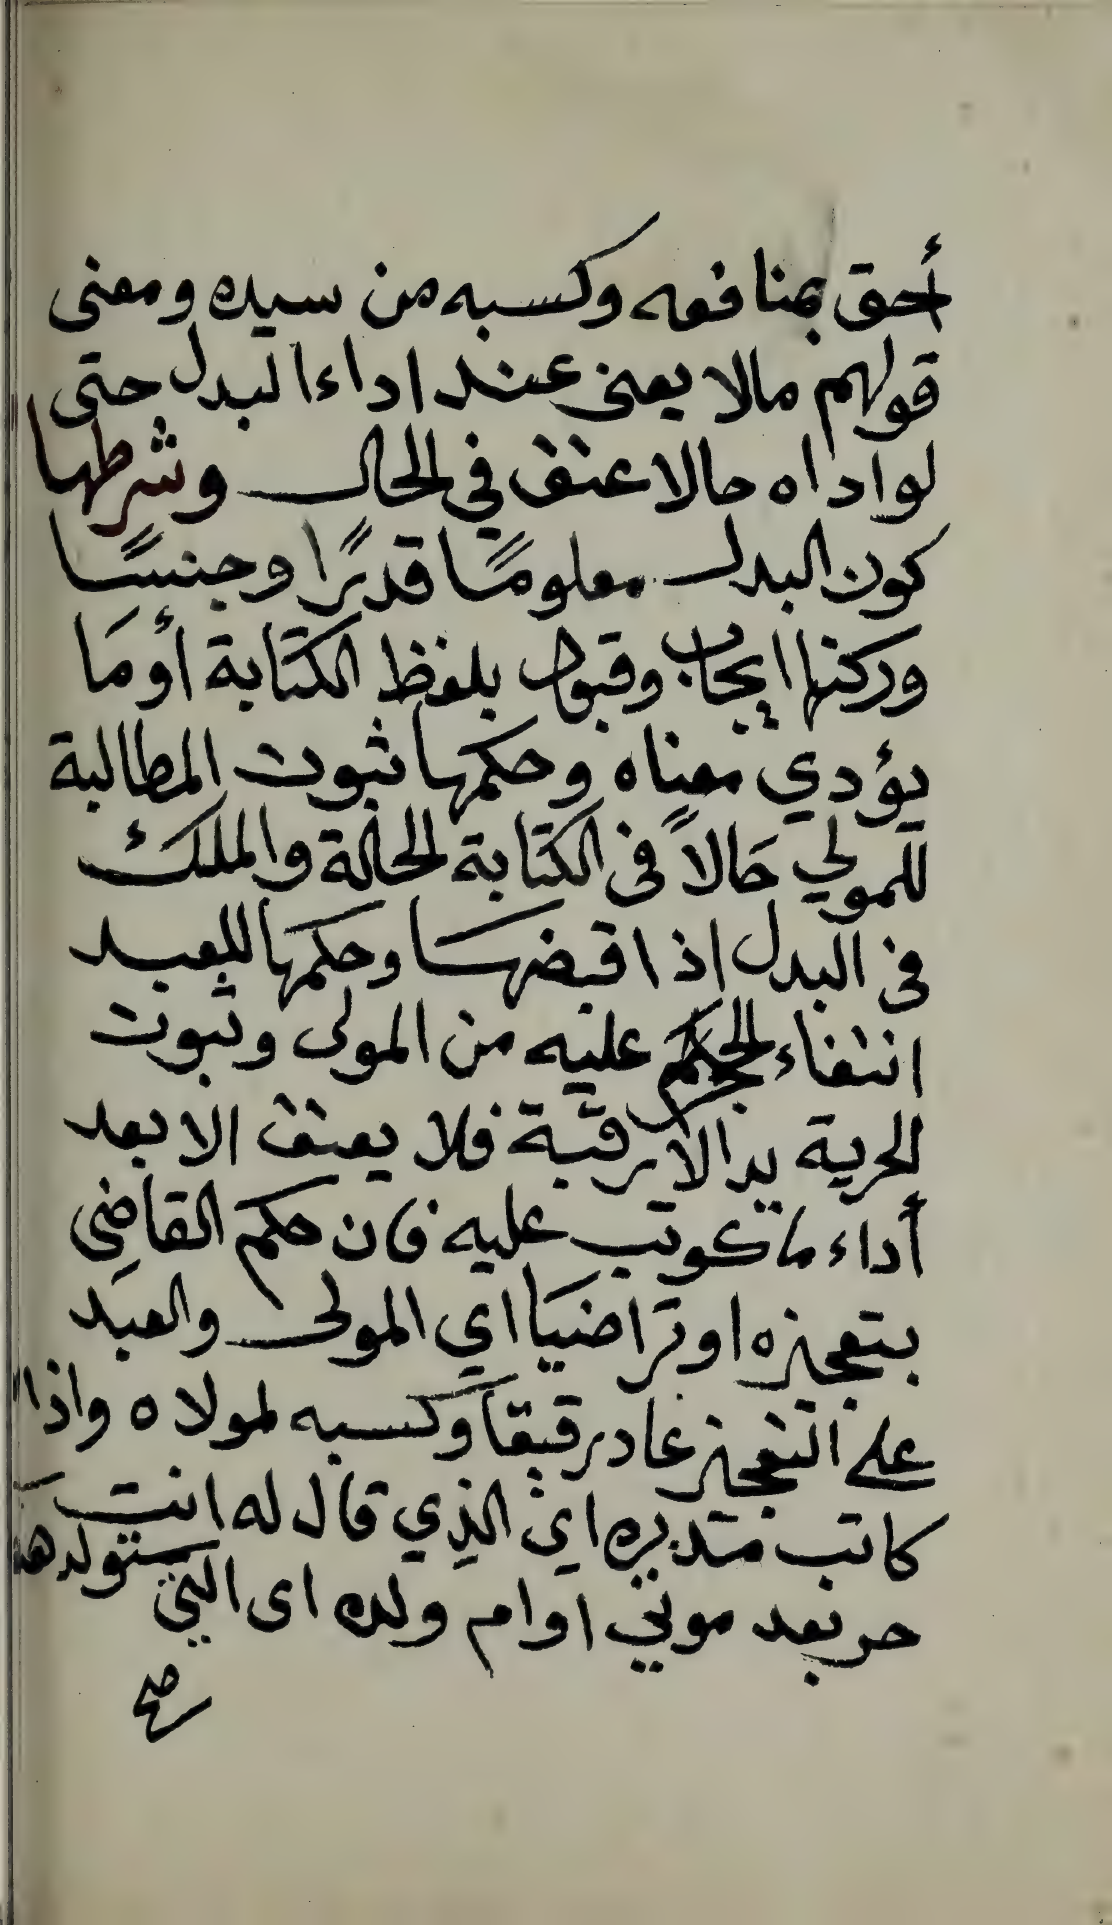 أحق بمنافعه وكسبه من سيده ومعنى
قولهم مالا يعنى عند اداء البدل حتى
لو اداه حالا عتق في الحال وشرطها
كون البدل معلومًا قدرًا وجنسًا
وركنها ايجاب وقبول بلفظ الكتابة أو مَا
يؤدي معناه وحكمها ثبوت المطالبة
للمولي حَالاً فى الكتابة الحالة والملك
فى البدل اذا قبضها وحكمها للعبد
انتفاء الحجر عليه من المولى وثبوت
الحرية يدا لا رقبة فلا يعتق الا بعد
أداء ما كوتب عليه فان حكم القاضى
بتعجزه او تراضيا اي المولى والعبد
على التعجيز عاد رقيقا وكسبه لمولاه واذا
كاتب مدبره اي الذي قال له انت
حر بعد موتي او ام ولده اى التي يستولدها
صح